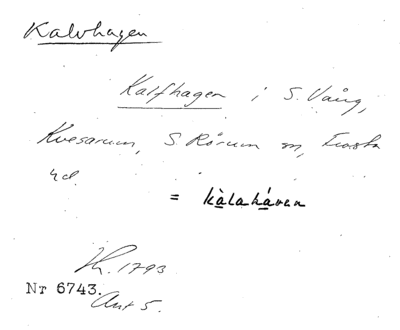 Kalvhagen
Kalfhagen i S. Vång,
Kvesarum, S. Rörum sn, Frosta
hd.
= kàlahávan
Nr 6743.
1793
Akt 5.